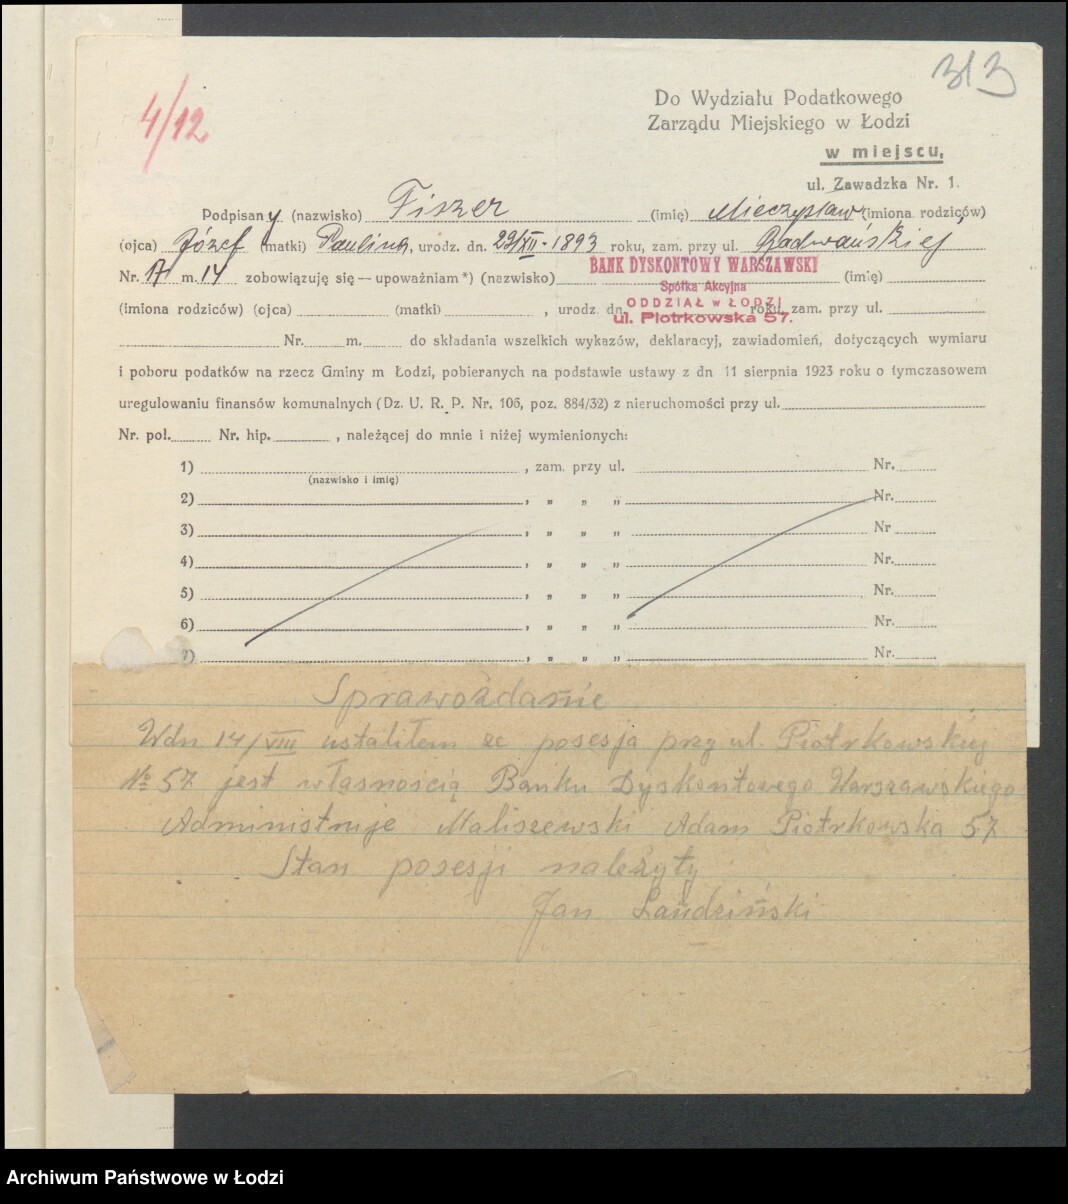 313
4/12
Do Wydziału Podatkowego
Zarządu Miejskiego w Łodzi
w miejscu,
ul. Zawadzka Nr. 1.
Podpisany (nazwisko) Fiszer (imię) Mieczysław (imiona rodziców)
(ojca) Józef (matki) Paulina, urodz. dn. 29/XII - 1893 roku, zam. przy ul. Radwańskiej
Nr. 17 m. 14 zobowiązuję się — upoważniam *) (nazwisko) BANK DYSKONTOWY WARSZAWSKI (imię)
Spółka Akcyjna
ODDZIAŁ w ŁODZI
(imiona rodziców) (ojca) (matki) , urodz. dn. roku, zam. przy ul.
ul. Piotrkowska 57.
Nr. m. do składania wszelkich wykazów, deklaracyj, zawiadomień, dotyczących wymiaru
i poboru podatków na rzecz Gminy m Łodzi, pobieranych na podstawie ustawy z dn 11 sierpnia 1923 roku o tymczasowem
uregulowaniu finansów komunalnych (Dz. U. R. P. Nr. 106, poz. 884/32) z nieruchomości przy ul.
Nr. pol. Nr. hip. , należącej do mnie i niżej wymienionych:
1) , zam. przy ul. Nr.
(nazwisko i imię)
2) , „ „ „ Nr.
3) , „ „ „ Nr
4) , „ „ „ Nr.
5) , „ „ „ Nr.
6) , „ „ „ Nr.
7) , „ „ „ Nr.
Sprawozdanie
Wdn 14/VIII ustaliłem że posesja przy ul. Piotrkowskiej
№ 57 jest własnością Banku Dyskontowego Warszawskiego
Administruje Maliszewski Adam Piotrkowska 57
Stan posesji należyty
Jan Landziński
Archiwum Państwowe w Łodzi